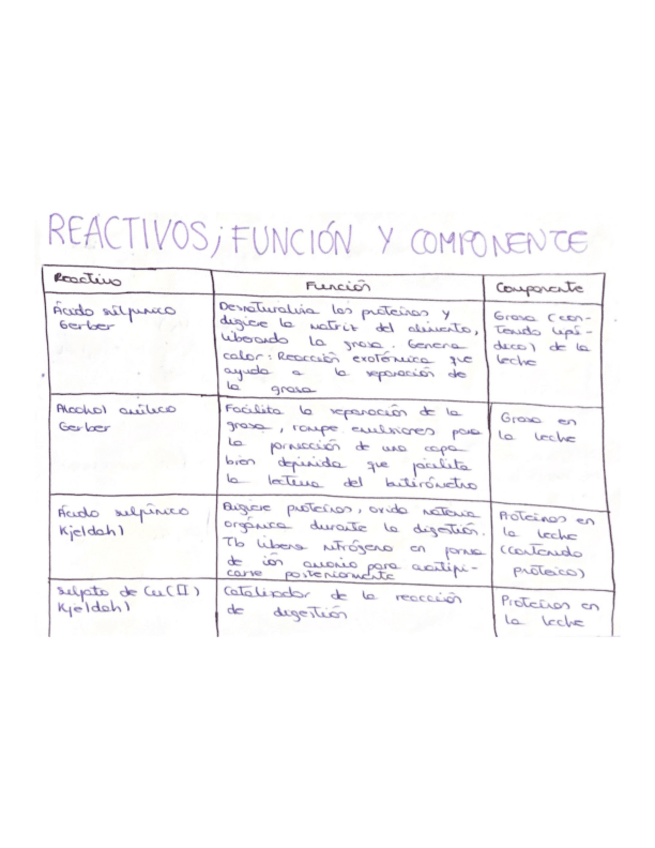 REACTIVOS; FUNCIÓN Y COMPONENTE
Reactivo
Función
Componente
Ácido sulfúrico
Gerber
Desnaturaliza las proteínas y
digiere la matriz del alimento,
liberando la grasa. Genera
calor: Reacción exotérmica que
ayuda a la separación de
la grasa
Grasa (con-
tenido lipí-
dico) de la
leche
Alcohol amílico
Gerber
Facilita la separación de la
grasa, rompe emulsiones para
la formación de una capa
bien definida que facilita
la lectura del butirómetro
Grasa en
la leche
Ácido sulfúrico
Kjeldahl
Digiere proteínas, oxida materia
orgánica durante la digestión.
Tb libera nitrógeno en forma
de ión amonio para cuantifi-
carse posteriormente
Proteínas en
la leche
(contenido
proteico)
Sulfato de Cu(II)
Kjeldahl
Catalizador de la reacción
de digestión
Proteínas en
la leche